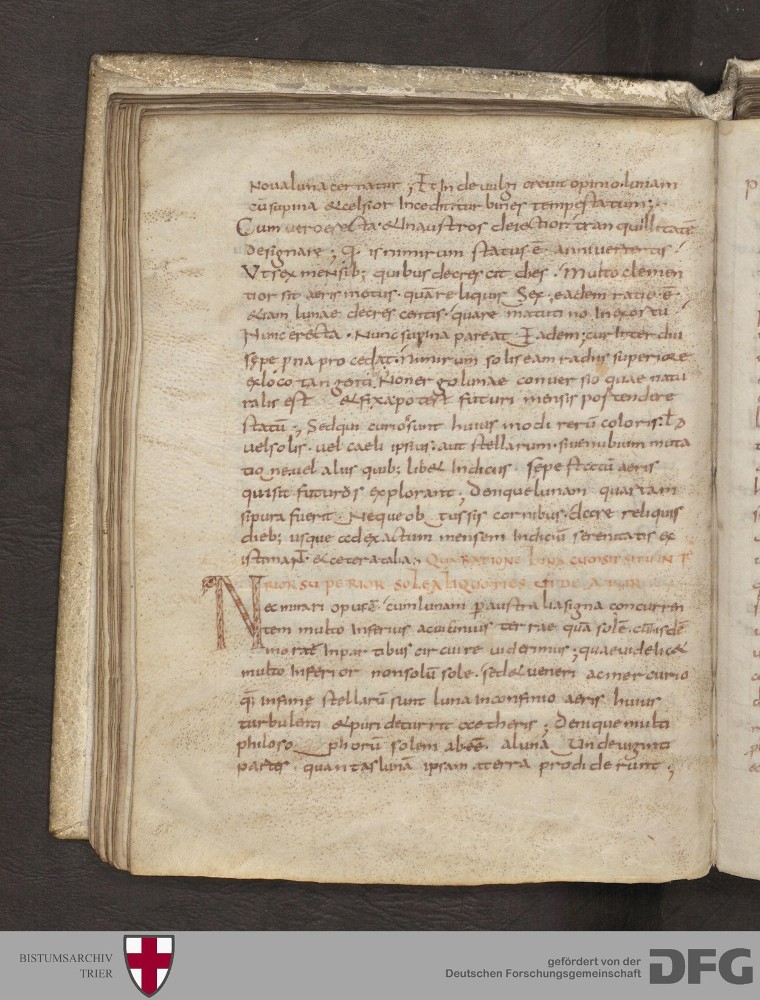 Noualuna cernatur ; Et Inde uulgi creuit opinio. lunam
cū supina & celsior Inceditur binies tempestatum ;
Cum uero erecta . & Inaustros deiectior. tranquillitatē
designare ; q . is nimirum status . ē . anniuertentis .
Vt sex mensib; quibus decrescit dies . Multo clemen
tior sit aeris motus . quāre liquis Sex . eadem ratio . ē .
& iam lunae decrescentis . quare matutino. In exortu
Nunc erecta . Nunc supina pareat . Eadem ; cur Inter diu
sępe pna procedat . nimirum solis eam radius superiore
ex loco tangerit. Non ergo lunae conuersio quae natu
ralis est & fixa potest futuri mensis postendere
statū ; Sed qui curiosi sunt huius modi rerū coloris .
uel solis . uel caeli ipsius . aut stellarum . siue nubium muta
tione. uel aliis quib; lib& Indiciis . sępe statū aeris
qui sit futurus explorant . Denique lunam quartam
si pura fuerit . Neque ob tussis cornibus . de re reliquis
dieb; usque ad exactum mensem Indiciū serenitatis ex
istimant & cetera talia . QUA RATIONE LUNA CUM SIT SITU INFE
RIOR SUPERIOR SOLE ALIQUOTIES VIDEATUR
Nec mirari opus ē . cum lunam p australia signa concurren
tem multo Inferius ac uicinius terrae quā solē . eiusdē
morā te Inpartibus circuire uiderimus ; quae uidelic&
multo Inferior non solū sole . sed & ueneri ac mercurio
q; infimę stellarū sunt luna in confinio aeris huius
turbulenti & puri decurrit aetheris ; Denique multi
philosophorū solem abēē . a lunā Undeuiginti
partes . quantas lunā ipsam a terra prodiderunt ;
BISTUMSARCHIV
TRIER
gefördert von der
Deutschen Forschungsgemeinschaft
DFG